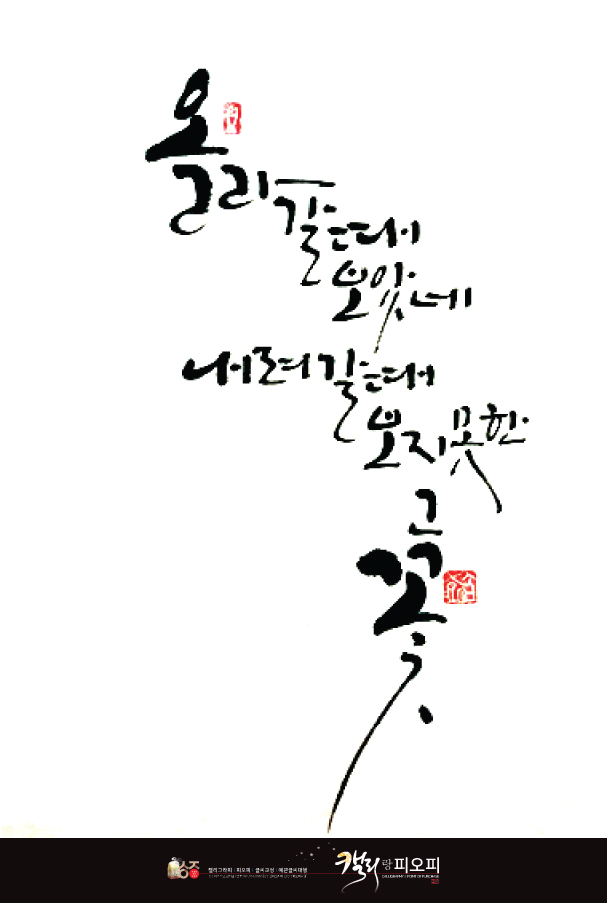 올라갈때
보았네
내려갈때
보지못한
그
꽃
캘리그라피 | 피오피 | 글씨교정 | 예쁜글씨대행
캘리랑피오피